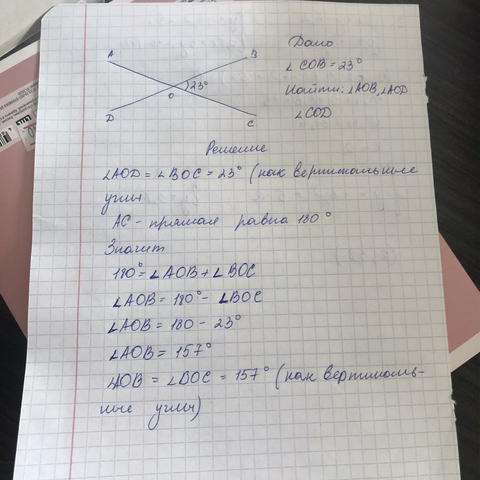 A
B
23°
O
D
C
Дано
∠COB = 23°
Найти: ∠AOB, ∠AOD
∠COD
Решение
∠AOD = ∠BOC = 23° (как вертикальные
углы
AC - прямая равна 180°
Значит
180° = ∠AOB + ∠BOC
∠AOB = 180° - ∠BOC
∠AOB = 180 - 23°
∠AOB = 157°
∠AOB = ∠DOC = 157° (как вертикаль-
ные углы)